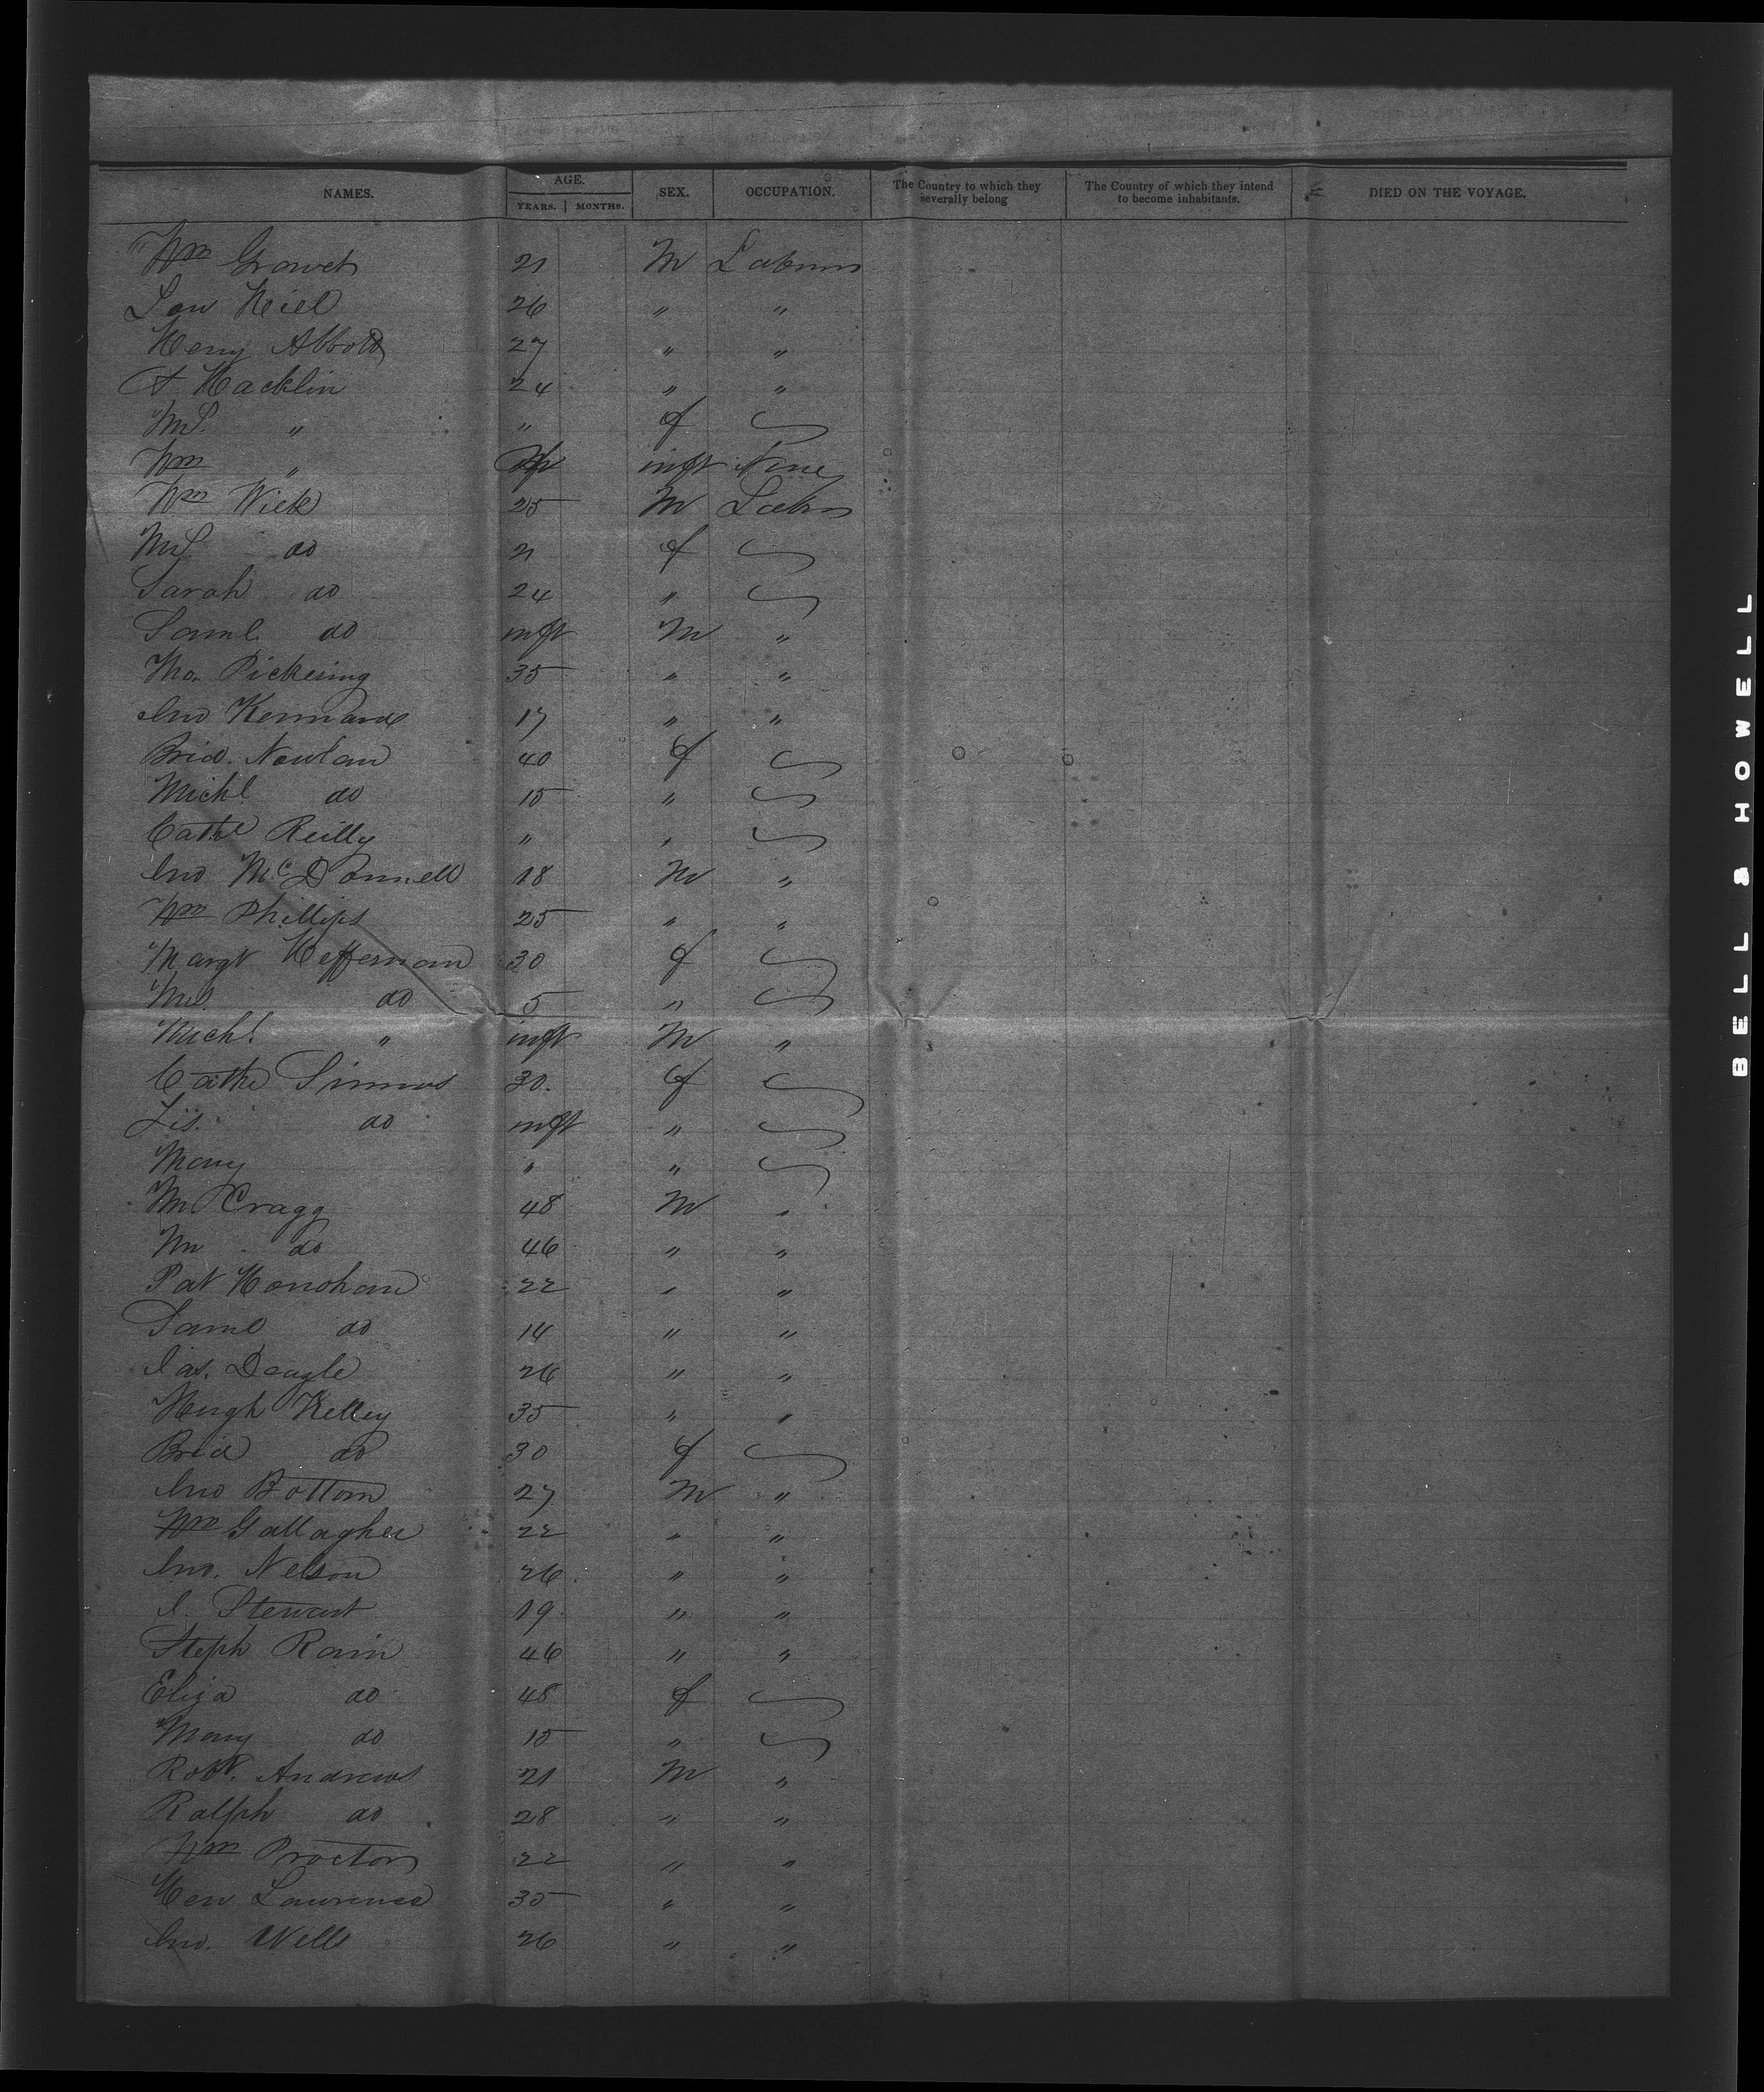 NAMES. AGE. YEARS. MONTHS. SEX. OCCUPATION. The Country to which they severally belong The Country of which they intend to become inhabitants. DIED ON THE VOYAGE.
Wm 21 M
26 " "
Henry Abbott 27 " "
Hacklin 24 " "
" " f
Wm " inft None
Wm Wick 25 M
do 21 f
Sarah do 24 "
Saml do inft M "
Tho. Pickering 35 " "
Jno Kennard 17 " "
Brid. Nowlan 40 f
Michl do 15 "
Cathe Reilly " "
Jno McDonnell 18 M "
Wm Phillips 25 " "
Margt Heffernan 30 f
do 5 "
Michl " inft M "
Cathe Simms 30. f
do inft "
Mary " "
Cragg 48 M "
do 46 " "
Pat Honohan 22 " "
Saml do 14 " "
Jas. Deagle 26 " "
Hugh Kelley 35 " "
Brid do 30 f
Jno Bottom 27 M "
Wm Gallagher 22 " "
Jno. Nelson 26 " "
J. Stewart 19 " "
Steph Rain 46 " "
Eliza do 48 f
Mary do 15 "
Robt. Andrews 21 M "
Ralph do 28 " "
Wm Proctor 22 " "
Hen Lawrence 35 " "
Jno. Wells 26 " "
BELL & HOWELL